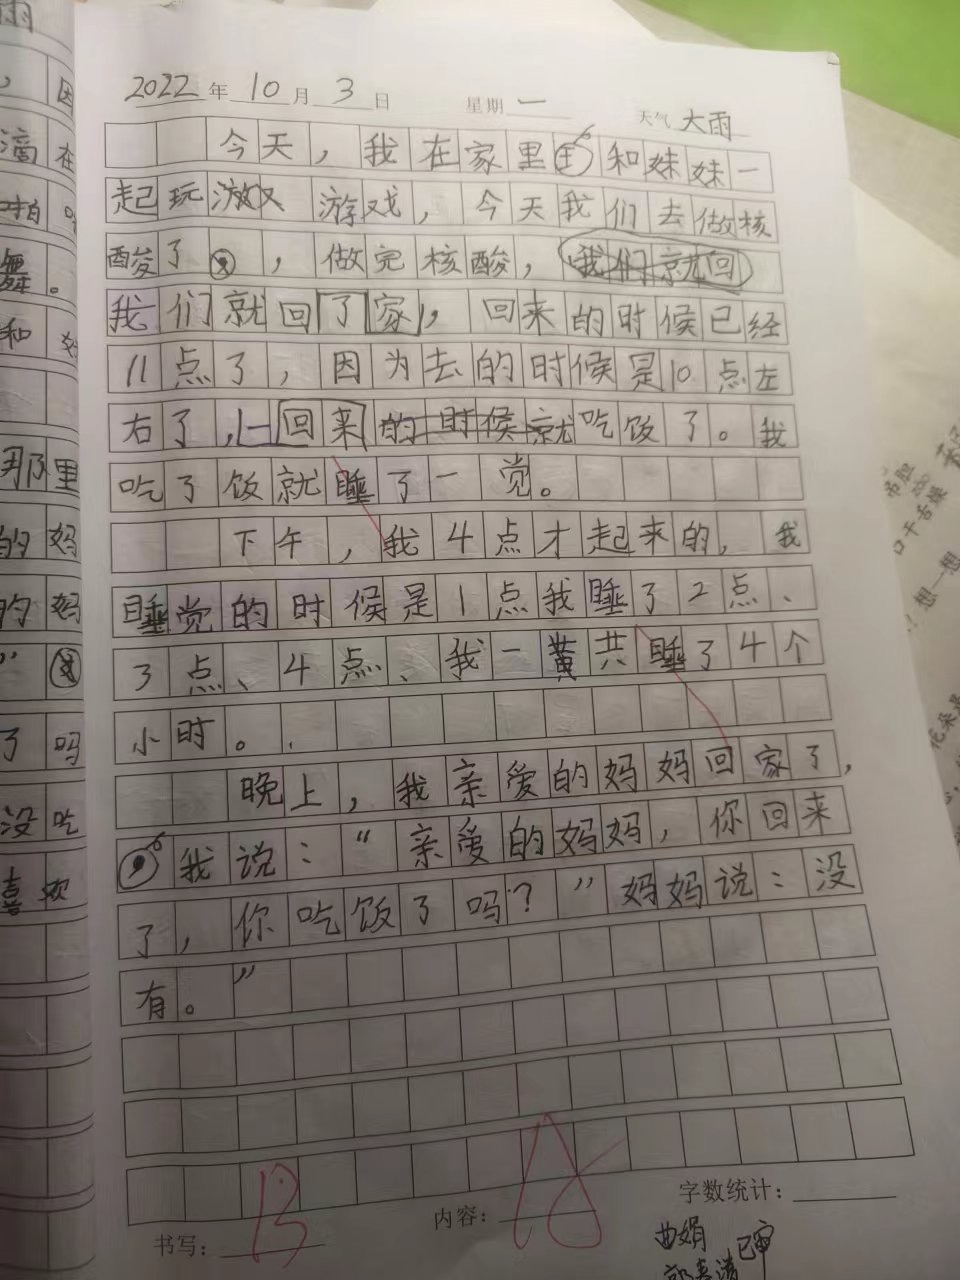 2022年10月3日 星期一 天气大雨
今天，我在家里和妹妹一
起玩游戏，今天我们去做核
酸了，做完核酸，我们就回
我们就回了家，回来的时候已经
11点了，因为去的时候是10点左
右了，回来的时候就吃饭了。我
吃了饭就睡了一觉。
下午，我4点才起来的，我
睡觉的时候是1点我睡了2点、
3点、4点、我一黄共睡了4个
小时。
晚上，我亲爱的妈妈回家了，
我说：“亲爱的妈妈，你回来
了，你吃饭了吗？”妈妈说：没
有。”
书写：B 内容：A 字数统计：
曲娟 已审
雨
因
滴在
和
那里
的妈
的妈
了吗
没吃
喜欢
想一想